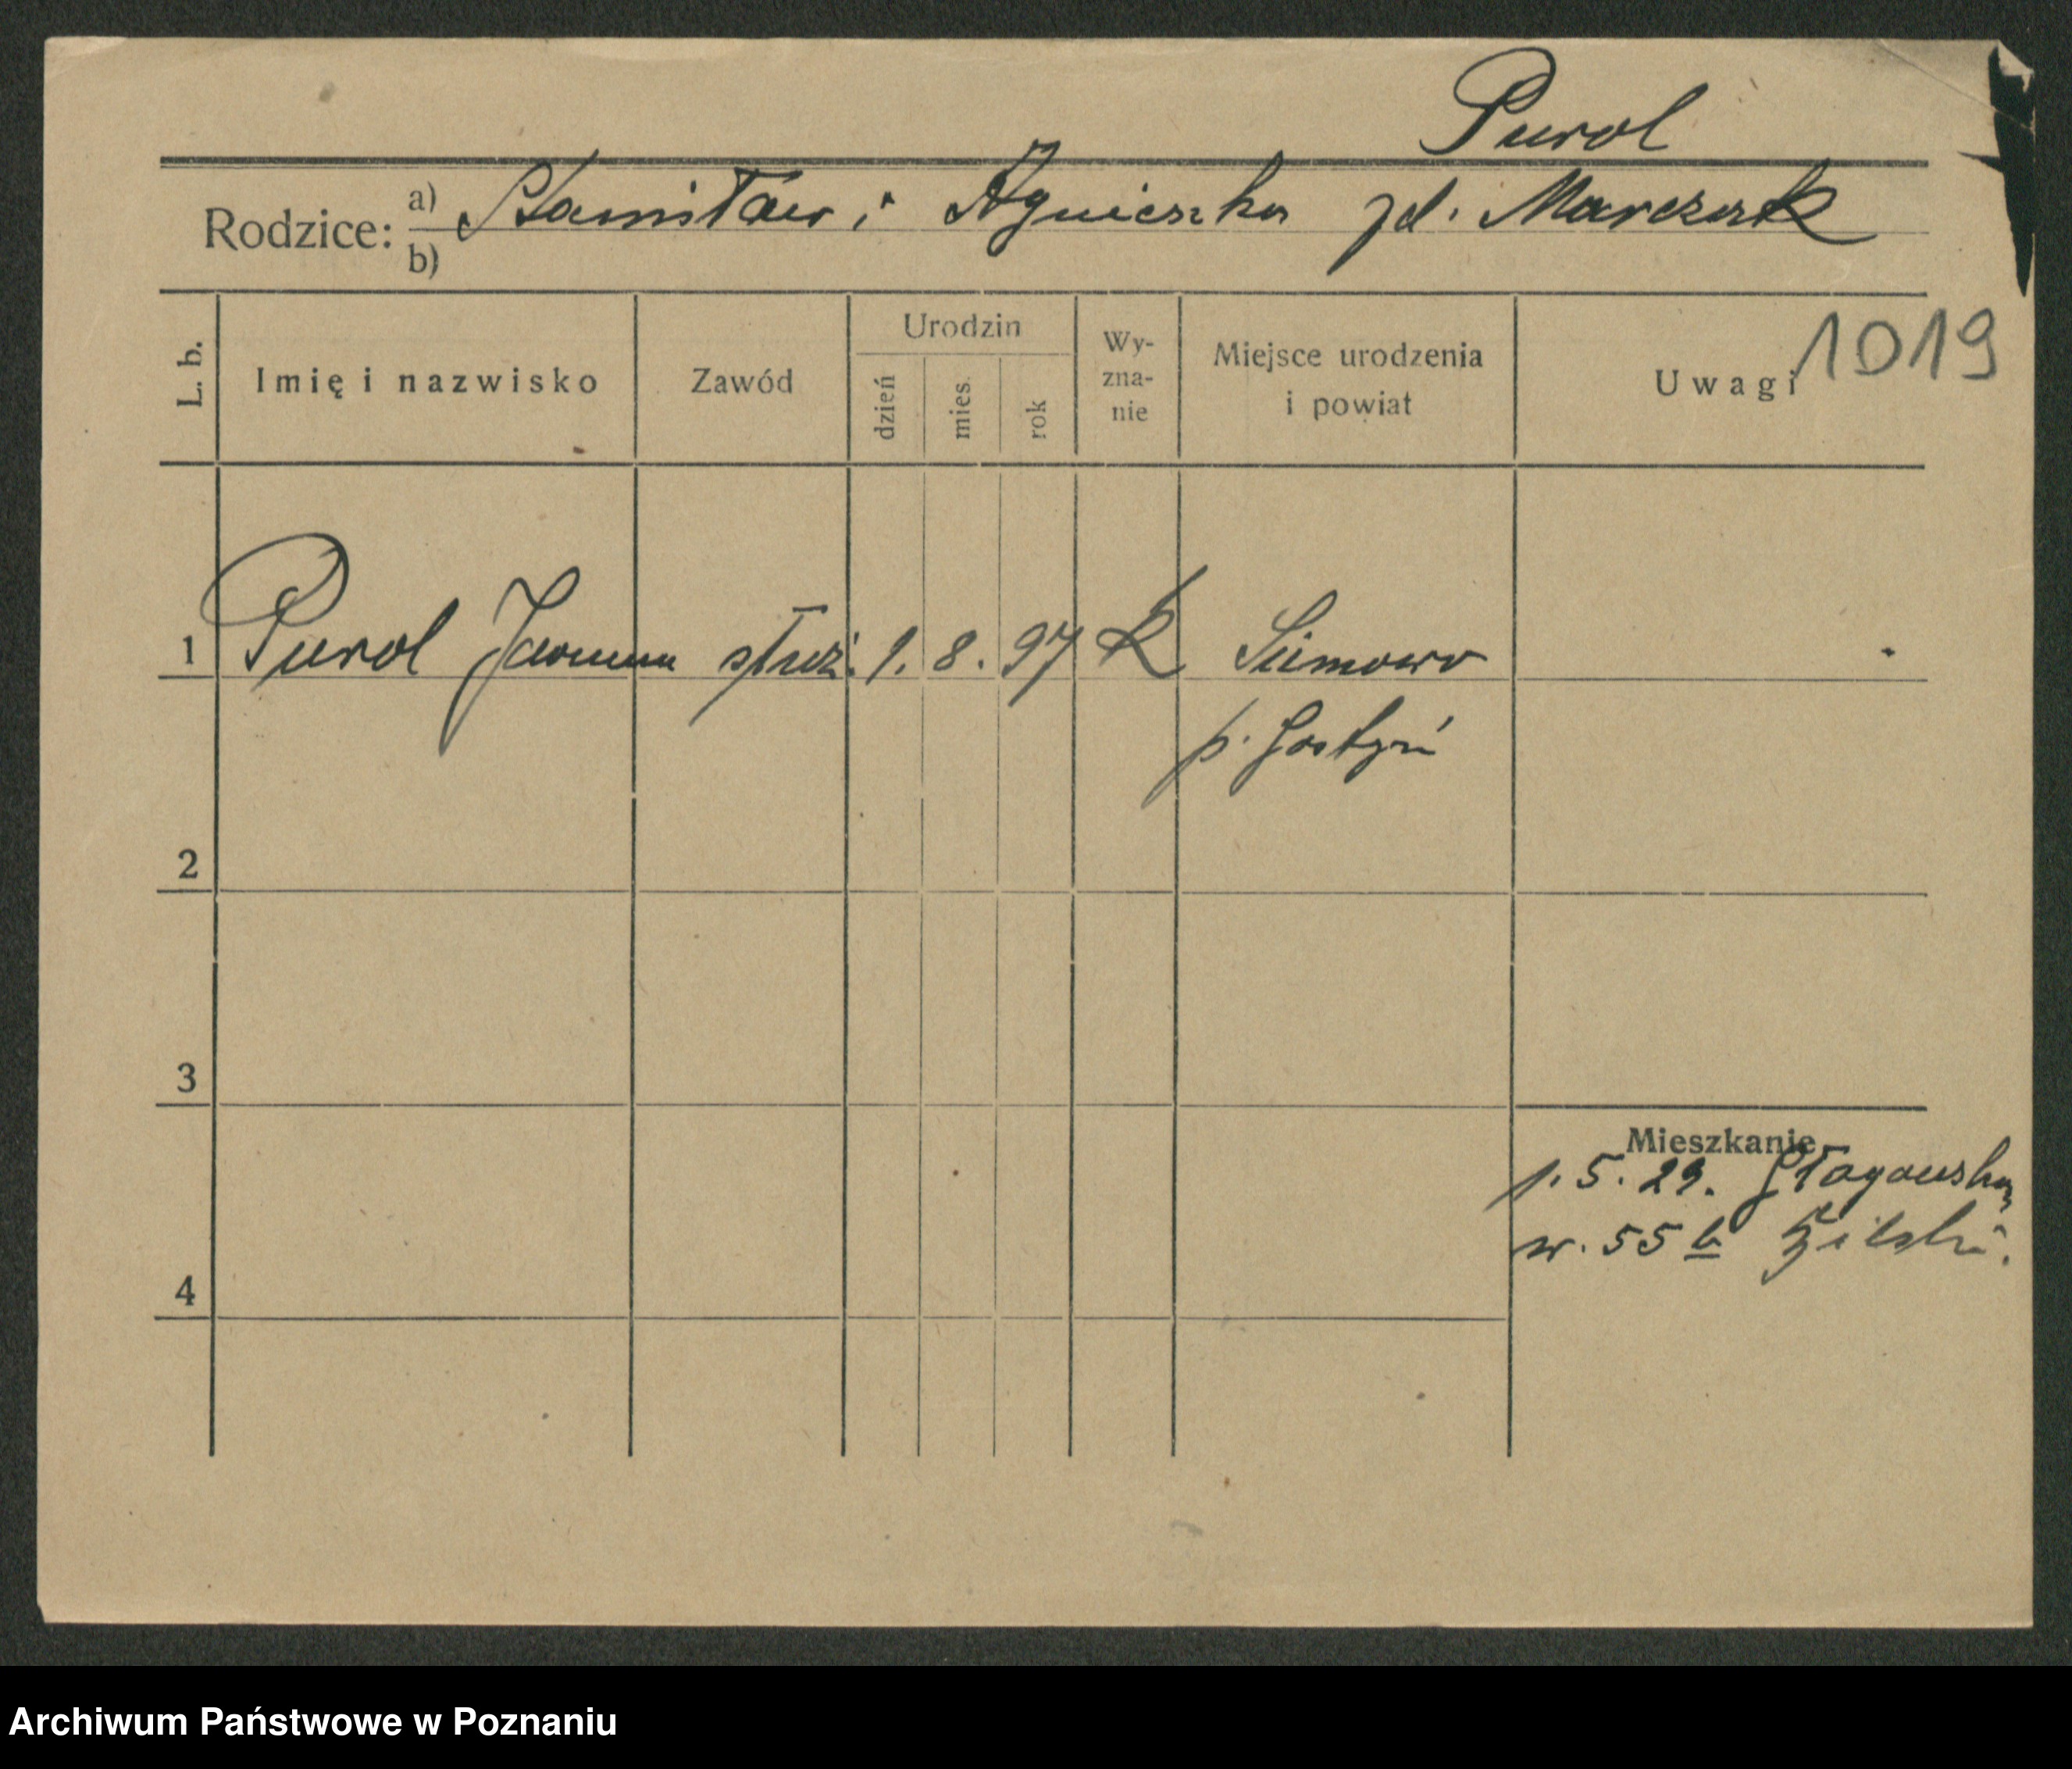 Purol
Rodzice: a) Stanisław i Agnieszka zd. Marczak
b)
L. b. Imię i nazwisko Zawód Urodzin dzień mies. rok Wy-zna-nie Miejsce urodzenia i powiat Uwagi 1019
1 Purol Joanna służ. 1. 8. 97 K Siemowo
p. Gostyń
2
3
Mieszkanie
1. 5. 29. Głogowska
w. 55 b
4
Archiwum Państwowe w Poznaniu